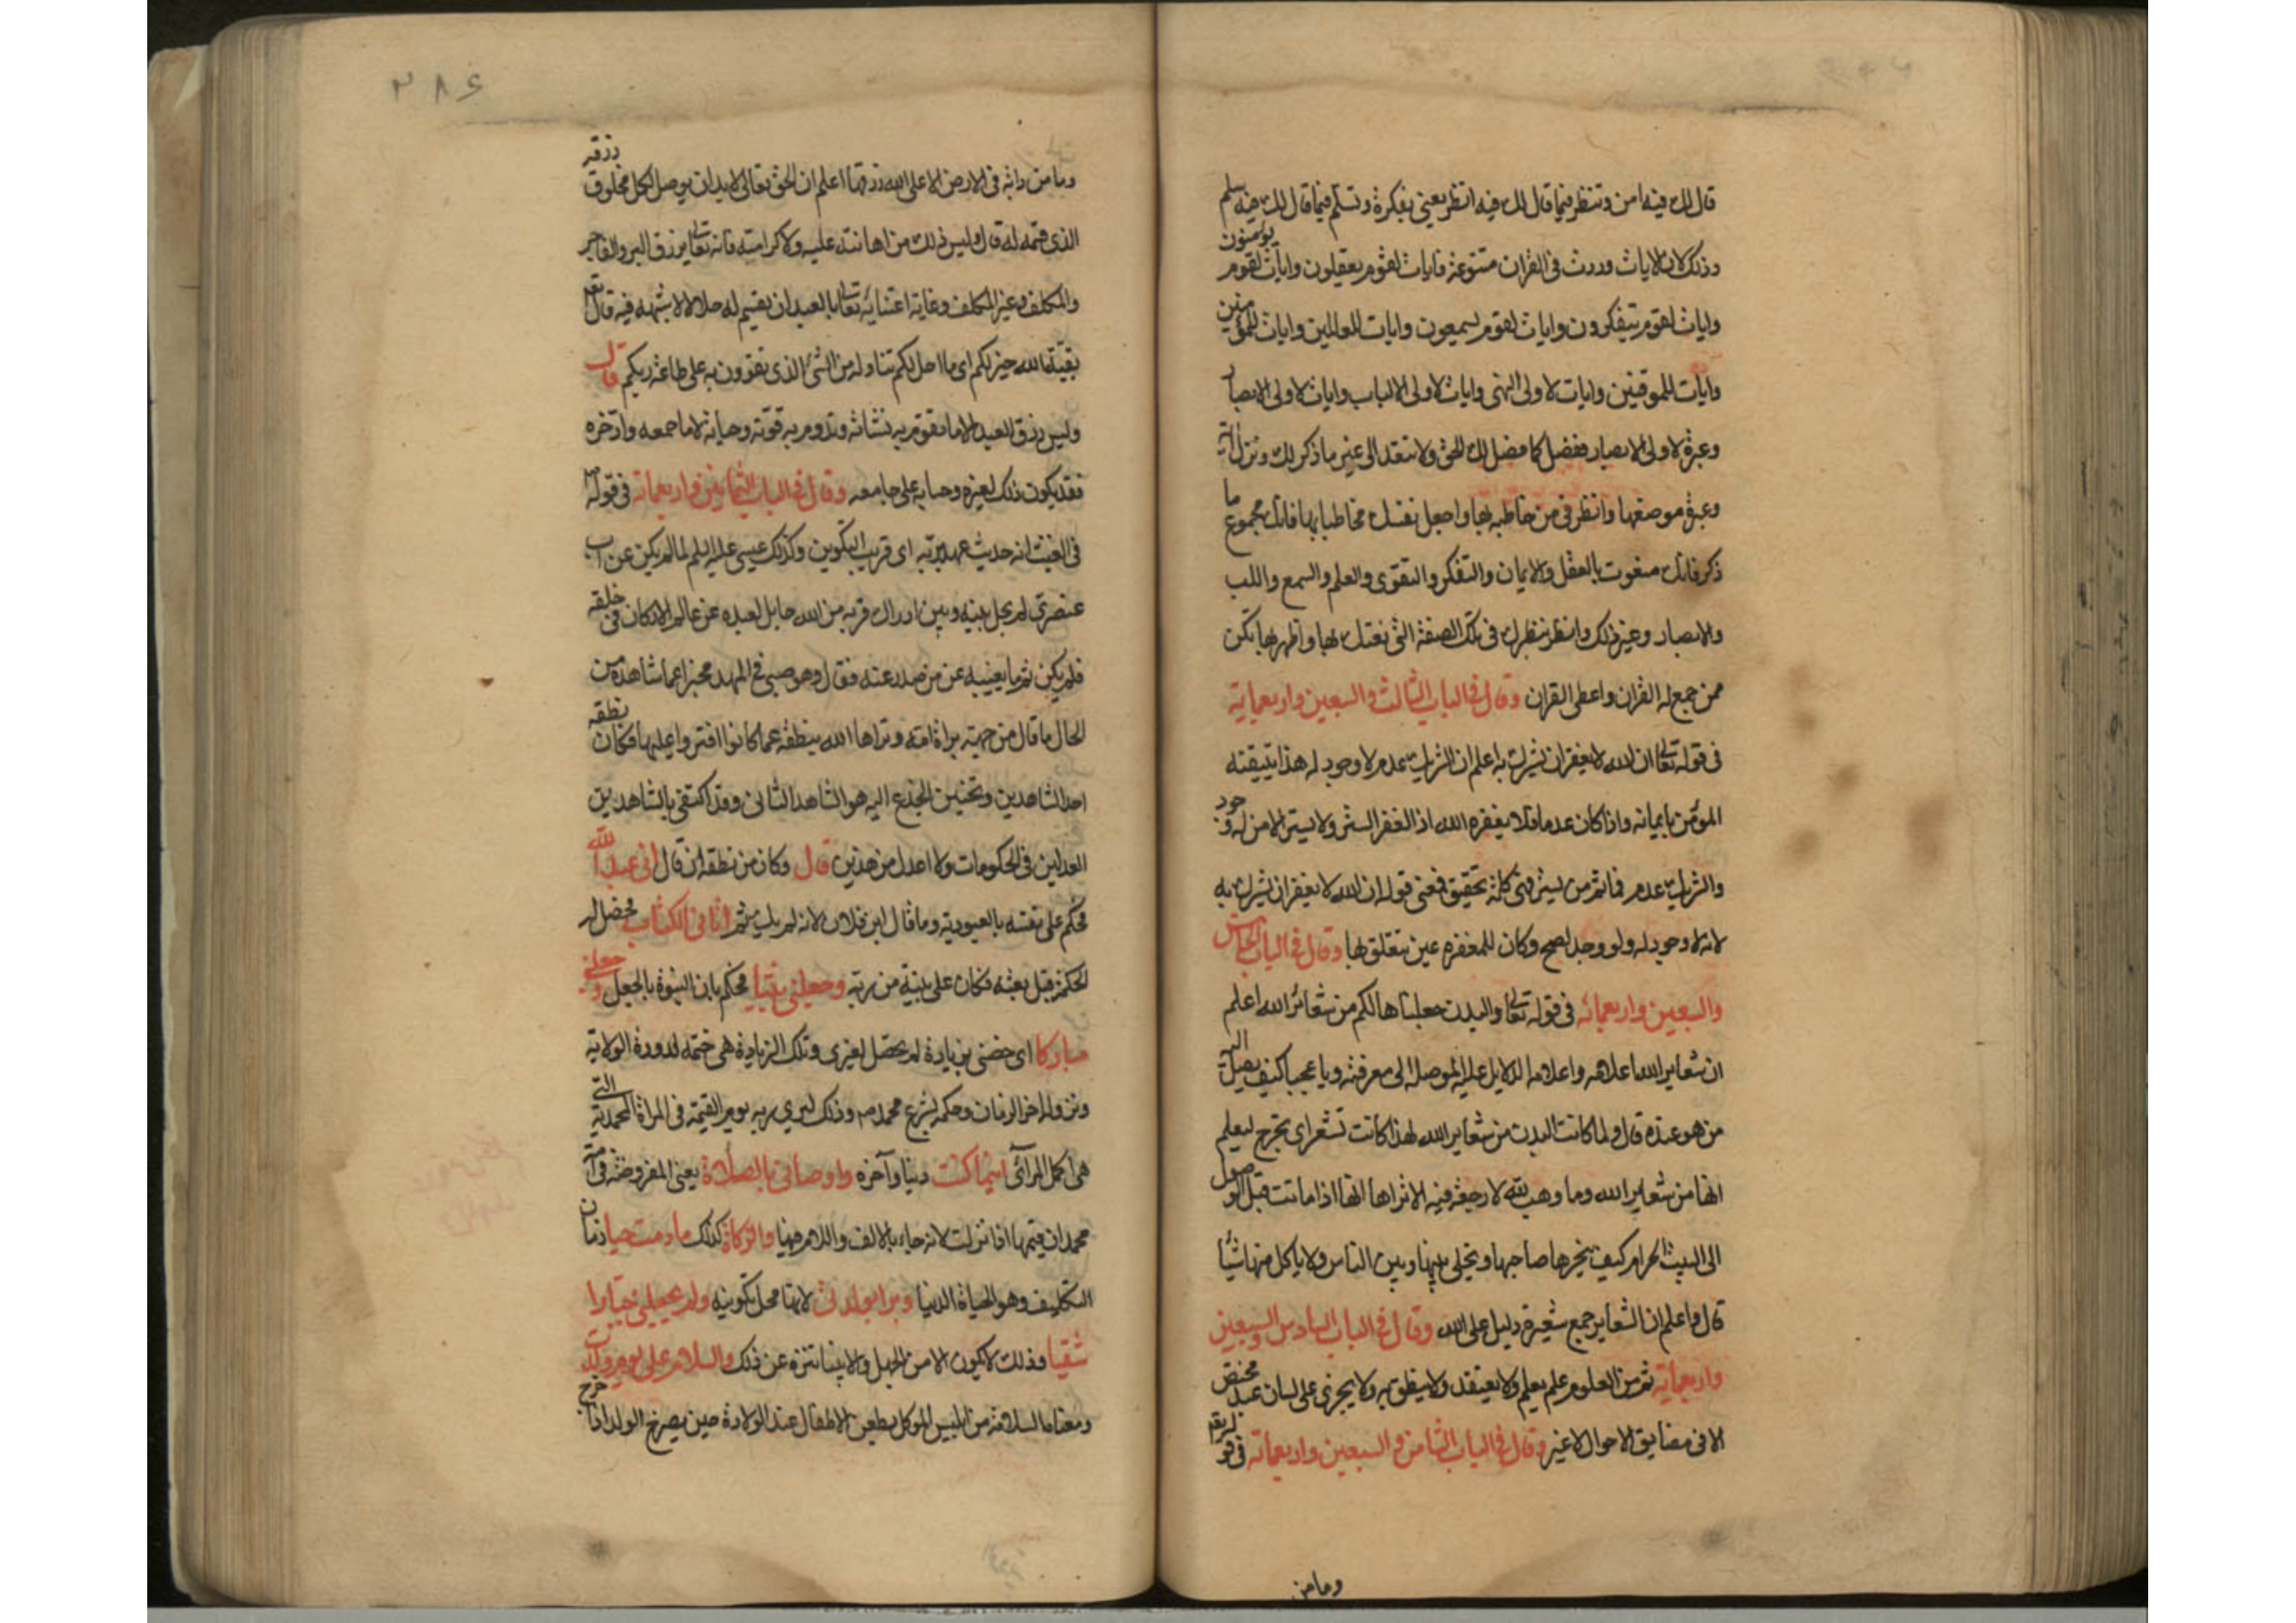 قال لك فيه امن وتنظر فيما قال لك فيه انظر يعني بفكرة وتسلم فيما قال لك فيه سلم
وذلك لان الايات وردت في القران متنوعة فايات لقوم يعقلون وايات لقوم يؤمنون
وايات لقوم يتفكرون وايات لقوم يسمعون وايات للعالمين وايات للمؤمنين
وايات للموقنين وايات لاولى النهى وايات لاولى الالباب وايات لاولى الابصار
وعبرة لاولى الابصار ففصل كما فصل لك الحق ولا تتعد الى غير ما ذكر لك ونزل اية
وعبرة موضعها وانظر في من خاطبه بها واجعل نفسك مخاطبا بها فانك مجموع ما
ذكر فانك منعوت بالعقل والايمان والتفكر والتقوى والعلم والسمع واللب
والابصار وغير ذلك وانظر بنظرك في تلك الصفة التي نعتك بها واظهر بها تكن
ممن جمع له القران واعطى القران وقال في الباب الثالث والسبعين واربعمائة
في قوله تعالى ان الله لا يغفر ان يشرك به اعلم ان الشريك عدم لا وجود له هذا يتيقنه
المؤمن بايمانه واذا كان عدما فلا يغفره الله اذ الغفر الستر ولا يستر الا من له وجود
والشريك عدم فما ثم من يستر فهي كلمة تحقيق فمعنى قوله ان الله لا يغفر ان يشرك به
لانه لا وجود له ولو وجد لصح وكان للمغفرة عين تتعلق بها وقال في الباب الخامس
والسبعين واربعمائة في قوله تعالى والبدن جعلناها لكم من شعائر الله اعلم
ان شعاير الله اعلامه واعلامه الدلايل عليه الموصلة الى معرفته ويا عجبا كيف يصل اليه
من هو عنده قال ولما كانت البدن من شعاير الله لهذا كانت تشعر اى تجرح ليعلم
انها من شعاير الله وما وهب لله لا رجعة فيه الا تراها انها اذا ماتت قبل الوصول
الى البيت الحرام كيف ينحرها صاحبها ويخلى بينها وبين الناس ولا ياكل منها شيئا
قال واعلم ان الشعاير جمع شعيرة دليل على الله وقال في الباب السادس والسبعين
واربعمائة ثم من العلوم علم يعلم ولا يعتقد ولا ينطق به ولا يجرى على لسان عبد مختص
الا في مضايق الاحوال لا غير وقال في الباب الثامن والسبعين واربعمائة في قوله
وما من
٣٨٤
وما من دابة في الارض الا على الله رزقها اعلم ان الحق تعالى لا بد ان يوصل لكل مخلوق رزقه
الذى قسمه له قال وليس ذلك من اهانته عليه ولا كرامته فانه تعالى يرزق البر والفاجر
والمكلف وغير المكلف وغاية اعتنائه تعالى بالعبد ان يقسم له حلالا لا شبهة فيه قال تعالى
بقية الله خير لكم اى ما احل لكم تناوله من الشئ الذى تقوون به على طاعة ربكم قال
وليس رزق العبد الا ما تقوم به نشاته وتدوم به قوته وحياته لا ما جمعه وادخره
فقد يكون ذلك لغيره وحسابه على جامعه وقال في الباب الثمانين واربعمائة في قوله
في الغيث انه حديث عهد بربه اى قريب التكوين وكذلك عيسى عليه السلم لما لم يكن عن اب
عنصري لم يحل بينه وبين ادراك قربه من الله حايل لبعده عن عالم الاركان في خلقه
فلم يكن ثم ما يغيبه عن من صدر عنه فقال وهو صبي في المهد مخبرا عما شاهده من
الحال ما قال من جهة براءة امه وبراها الله بنطقه عما كانوا افتروا عليها فكان نطقه
احد الشاهدين وتحنين الجذع اليه هو الشاهد الثاني وقد اكتفى بالشاهدين
العدلين في الحكومات ولا اعدل من هذين قال وكان من نطقه ان قال اني عبد الله
فحكم على نفسه بالعبودية وما قال ابن فلان لانه لم يك ثم اتاني الكتاب فحصل له
الحكم قبل بعثه فكان على بينة من ربه وجعلني نبيا فحكم بان النبوة بالجعل وجعلني
مباركا اى خصني بزيادة لم تحصل لغيرى وتلك الزيادة هي ختمه لدورة الولاية
ونزوله اخر الزمان وحكمه بشرع محمد صم وذلك ليرى ربه يوم القيمة في المراة المحمدية التي
هي اكمل المرائي اينما كنت دنيا وآخره واوصاني بالصلاة يعنى المفروضة في امة
محمد ان يقيمها اذا نزلت لانه جاء بالالف واللام فيها والزكاة كذلك ما دمت حيا زمان
التكليف وهو الحياة الدنيا وبرا بوالدتي لانها محل تكوينه ولم يجعلني جبارا
شقيا وذلك لا يكون الا من الجهل والانبيا تنزه عن ذلك والسلام على يوم ولدت
ومعناه السلامة من ابليس الموكل بطعن الاطفال عند الولادة حين يصرخ الولد اذا خرج